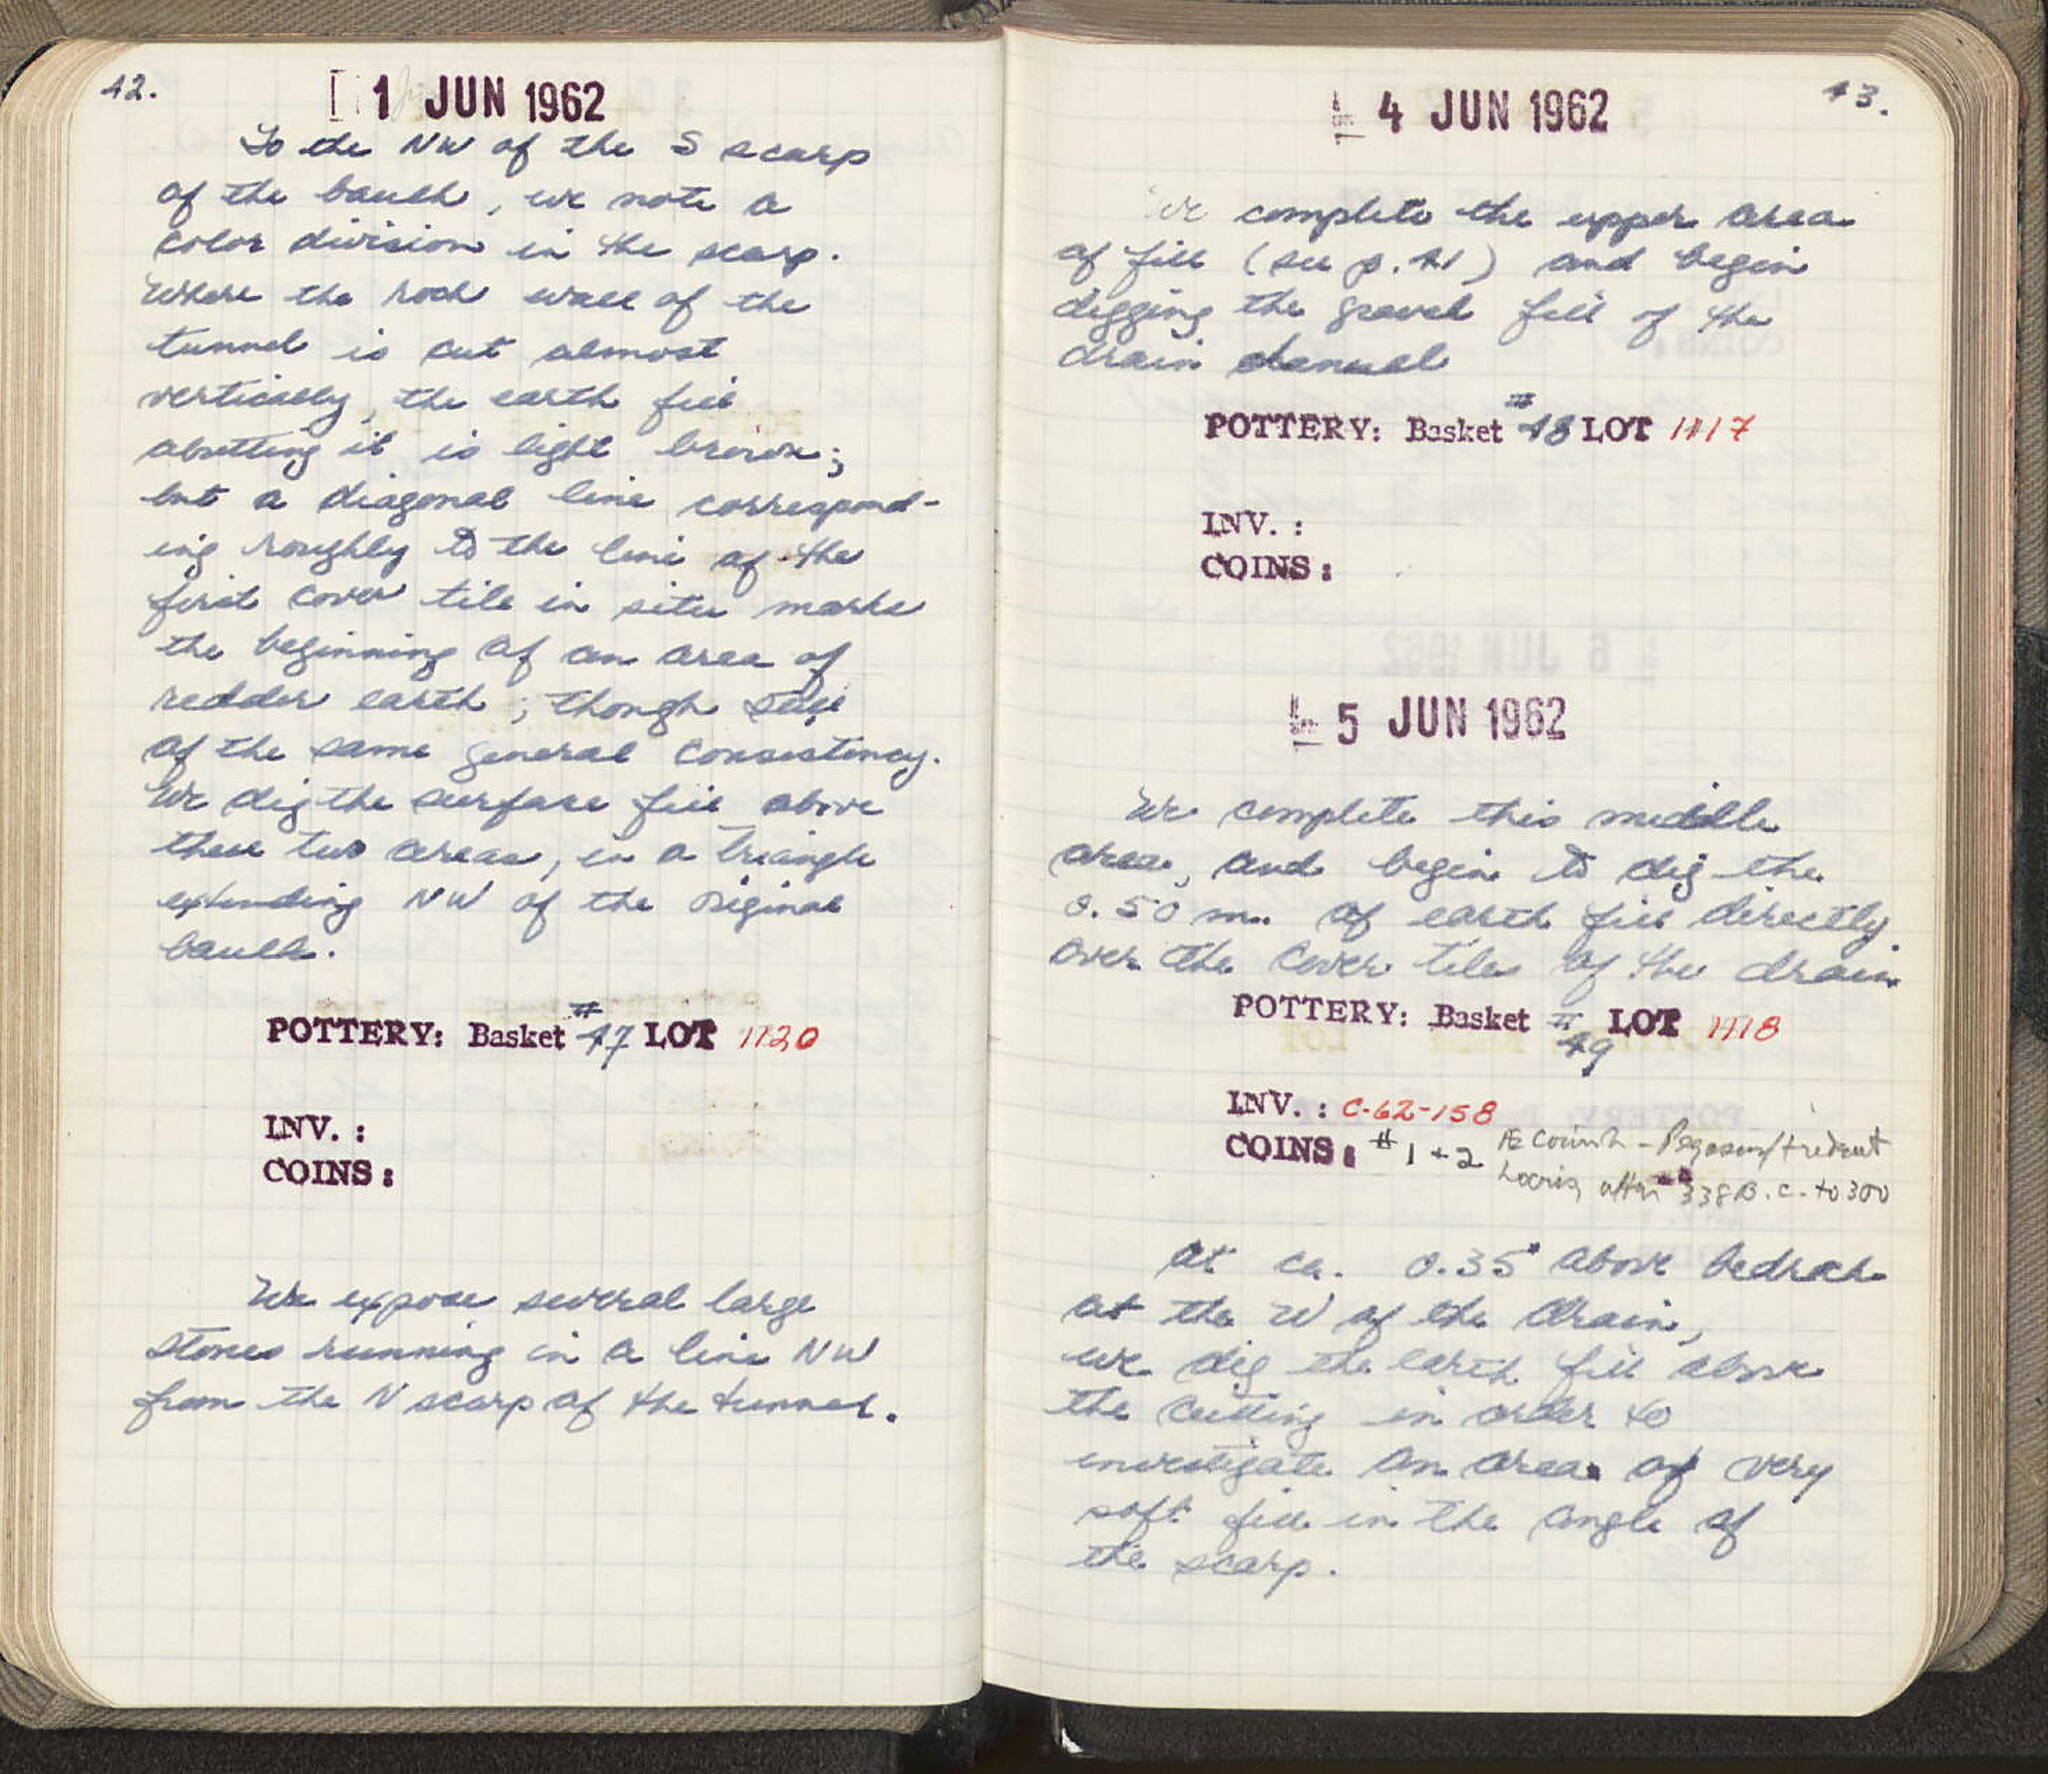 42.
1 JUN 1962
To the NW of the S scarp
of the baulk, we note a
color division in the scarp.
Where the rock wall of the
tunnel is cut almost
vertically, the earth fill
abutting it is light brown;
but a diagonal line correspond-
ing roughly to the line of the
first cover tile in situ marks
the beginning of an area of
redder earth; though still
of the same general consistency.
We dig the surface fill above
these two areas, in a triangle
extending NW of the original
baulk.
POTTERY: Basket #47 LOT 1120
INV. :
COINS:
We expose several large
stones running in a line NW
from the N scarp of the tunnel.
43.
4 JUN 1962
We complete the upper area
of fill (see p. 41) and begin
digging the gravel fill of the
drain channel
POTTERY: Basket #48 LOT 1117
INV. :
COINS:
5 JUN 1962
We complete this middle
area, and begin to dig the
0.50 m. of earth fill directly
over the cover tiles of the drain.
POTTERY: Basket #49 LOT 1118
INV. : C-62-158
COINS: #1+2 Æ Corinth - Pegasus/trident
Locris, after 338 B.C. to 300
At ca. 0.35 above bedrock
at the W of the drain,
we dig the earth fill above
the cutting in order to
investigate an area of very
soft fill in the angle of
the scarp.